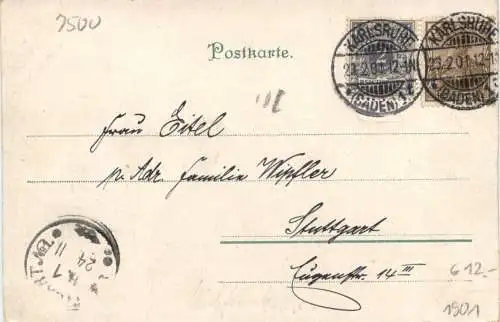 7500
Postkarte.
KARLSRUHE
23.2.01.12-1N
*(BADEN)1.
KARLSRUHE
23.2.01.12-1
*(BADEN)1.
Frau Eitel
p. Adr. Familie Wipfler
Stuttgart
Eugenstr. 14 III
6 12.-
1901